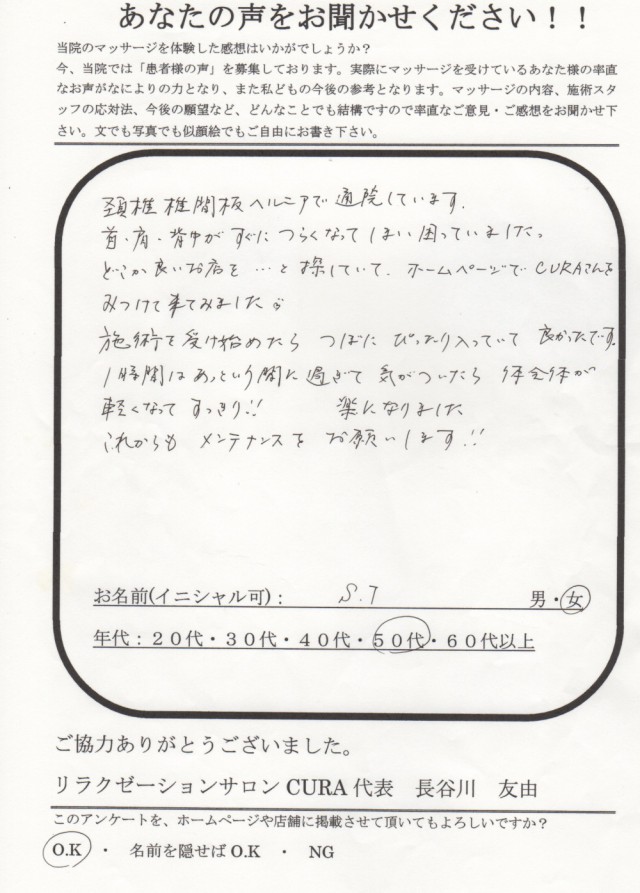 あなたの声をお聞かせください！！
当院のマッサージを体験した感想はいかがでしょうか？
今、当院では「患者様の声」を募集しております。実際にマッサージを受けているあなた様の率直
なお声がなによりの力となり、また私どもの今後の参考となります。マッサージの内容、施術スタ
ッフの応対法、今後の願望など、どんなことでも結構ですので率直なご意見・ご感想をお聞かせ下
さい。文でも写真でも似顔絵でもご自由にお書き下さい。
頚椎椎間板ヘルニアで通院しています。
首・肩・背中がすぐにつらくなってしまい困っていました。
どこか良いお店を…と探していて、ホームページでCURAさんを
みつけて来てみました
施術を受け始めたら つぼに ぴったり入っていて 良かったです。
1時間はあっという間に過ぎて 気がついたら 体全体が
軽くなって すっきり!! 楽になりました
これからも メンテナンスを お願いします!!
お名前(イニシャル可)： S.T 男・女
年代：２０代・３０代・４０代・５０代・６０代以上
ご協力ありがとうございました。
リラクゼーションサロン CURA 代表 長谷川 友由
このアンケートを、ホームページや店舗に掲載させて頂いてもよろしいですか？
O.K ・ 名前を隠せば O.K ・ NG